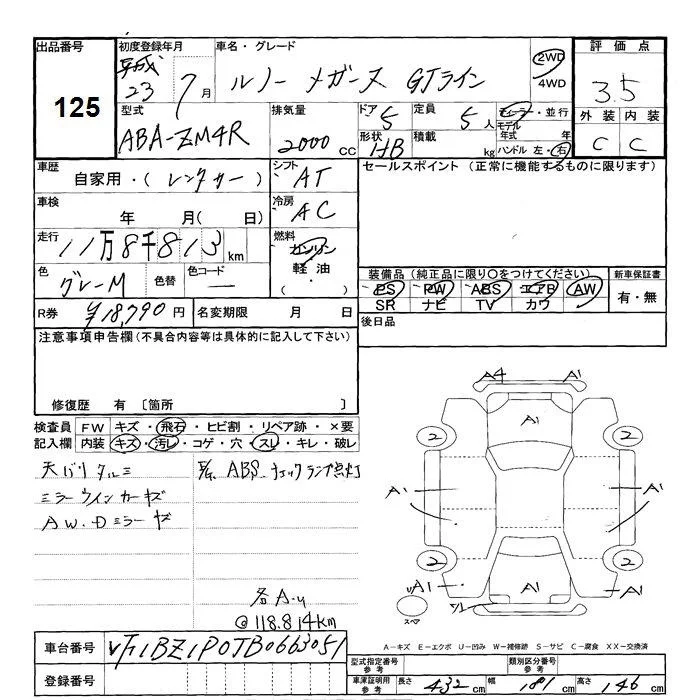 出品番号 125
初度登録年月 平成 23 7 月
車名・グレード ルノー メガーヌ GTライン
2WD
4WD
評価点 3.5
外装 内装
C C
型式 ABA-ZM4R
排気量 2000 CC
ドア 5
形状 HB
定員 5 人
積載 kg
ディーラー・並行
モデル年式 年
ハンドル 左・右
車歴 自家用・(レンタカー)
シフト AT
セールスポイント (正常に機能するものに限ります)
車検 年 月( 日)
冷房 AC
走行 11万8千813 km
燃料 ガソリン
軽油
( ・ )
色 グレーM
色替
色コード
装備品(純正品に限り○をつけてください)
PS PW ABS エアB AW
SR ナビ TV カワ
新車保証書
有・無
R券 ¥18,790 円
名変期限 月 日
後日品
注意事項申告欄(不具合内容等は具体的に記入して下さい)
修復歴 有 〔箇所 〕
検査員記入欄
FW キズ・飛石・ヒビ割・リペア跡・×要
内装 キズ・汚レ・コゲ・穴・スレ・キレ・破レ
天バリタルミ
ミラーウインカーキズ
AW.Dミラーキズ
ABS.チェックランプ点灯
各A.U
@118.814km
A4 A1
A1
2 2
A1 A1
2 2
A1 A1 A1
スペア
車台番号 VF1BZ1P0JB0663051
登録番号
A-キズ E-エクボ U-凹み W-補修跡 S-サビ C-腐食 XX-交換済
型式指定番号 参考
類別区分番号 参考
車庫証明用 参考 長さ 432 cm 幅 181 cm 高さ 146 cm